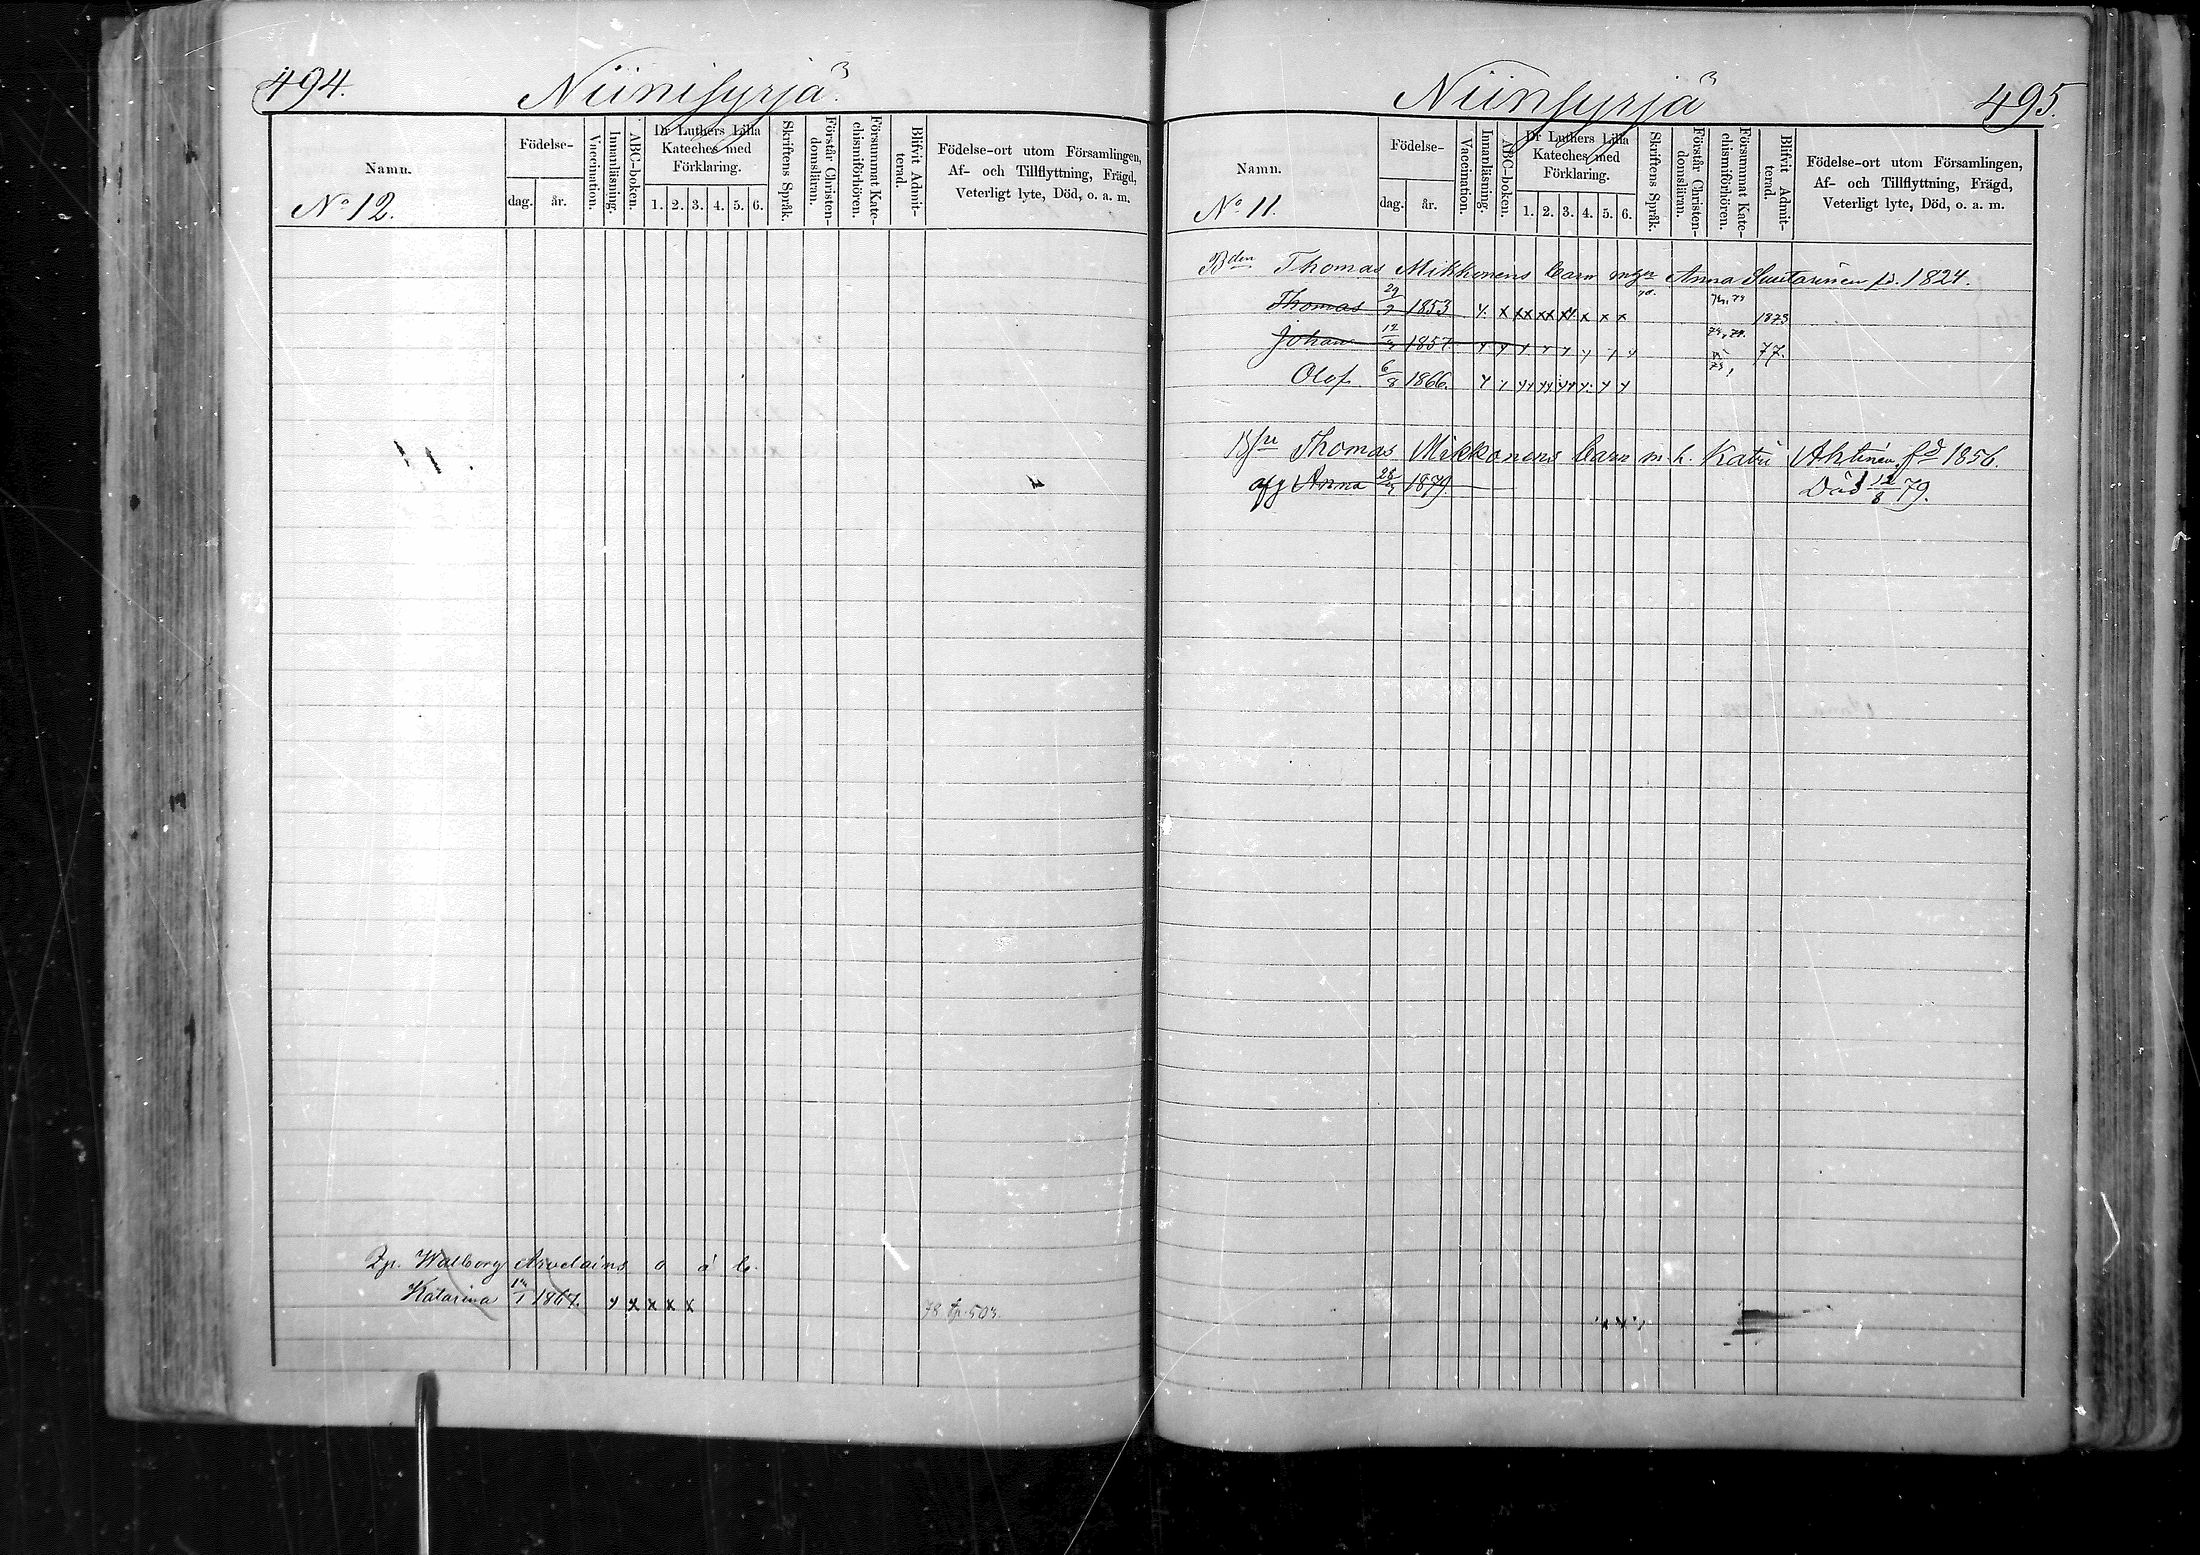 494.
Niinisyrjä
Namn.
Födelse-
dag.
år.
Vaccination.
Innanläsning.
ABC-boken.
Dr Luthers Lilla
Kateches med
Förklaring.
1. 2. 3. 4. 5. 6.
Skriftens Språk.
Förstår Christen-
domsläran.
Försummat Kate-
chismiförhören.
Blifvit Admit-
terad.
Födelse-ort utom Församlingen,
Af- och Tillflyttning, Frägd,
Veterligt lyte, Död, o. a. m.
No 12.
Walborg
Katarina 1867. x x x x
78 503.
Niinsyrjä
495.
Namn.
Födelse-
dag.
år.
Vaccination.
Innanläsning.
ABC-boken.
Dr Luthers Lilla
Kateches med
Förklaring.
1. 2. 3. 4. 5. 6.
Skriftens Språk.
Förstår Christen-
domsläran.
Försummat Kate-
chismiförhören.
Blifvit Admit-
terad.
Födelse-ort utom Församlingen,
Af- och Tillflyttning, Frägd,
Veterligt lyte, Död, o. a. m.
No 11.
Bden Thomas Mikkonens barn Anna 1824.
Thomas 1853 x xx xx x x x 1873
Johan 1857 77.
Olof 6/8 1866.
Thomas Mikkonens barn m. h. Katri Ahtinen fd 1856.
Anna 1879. Död 12/8 79.